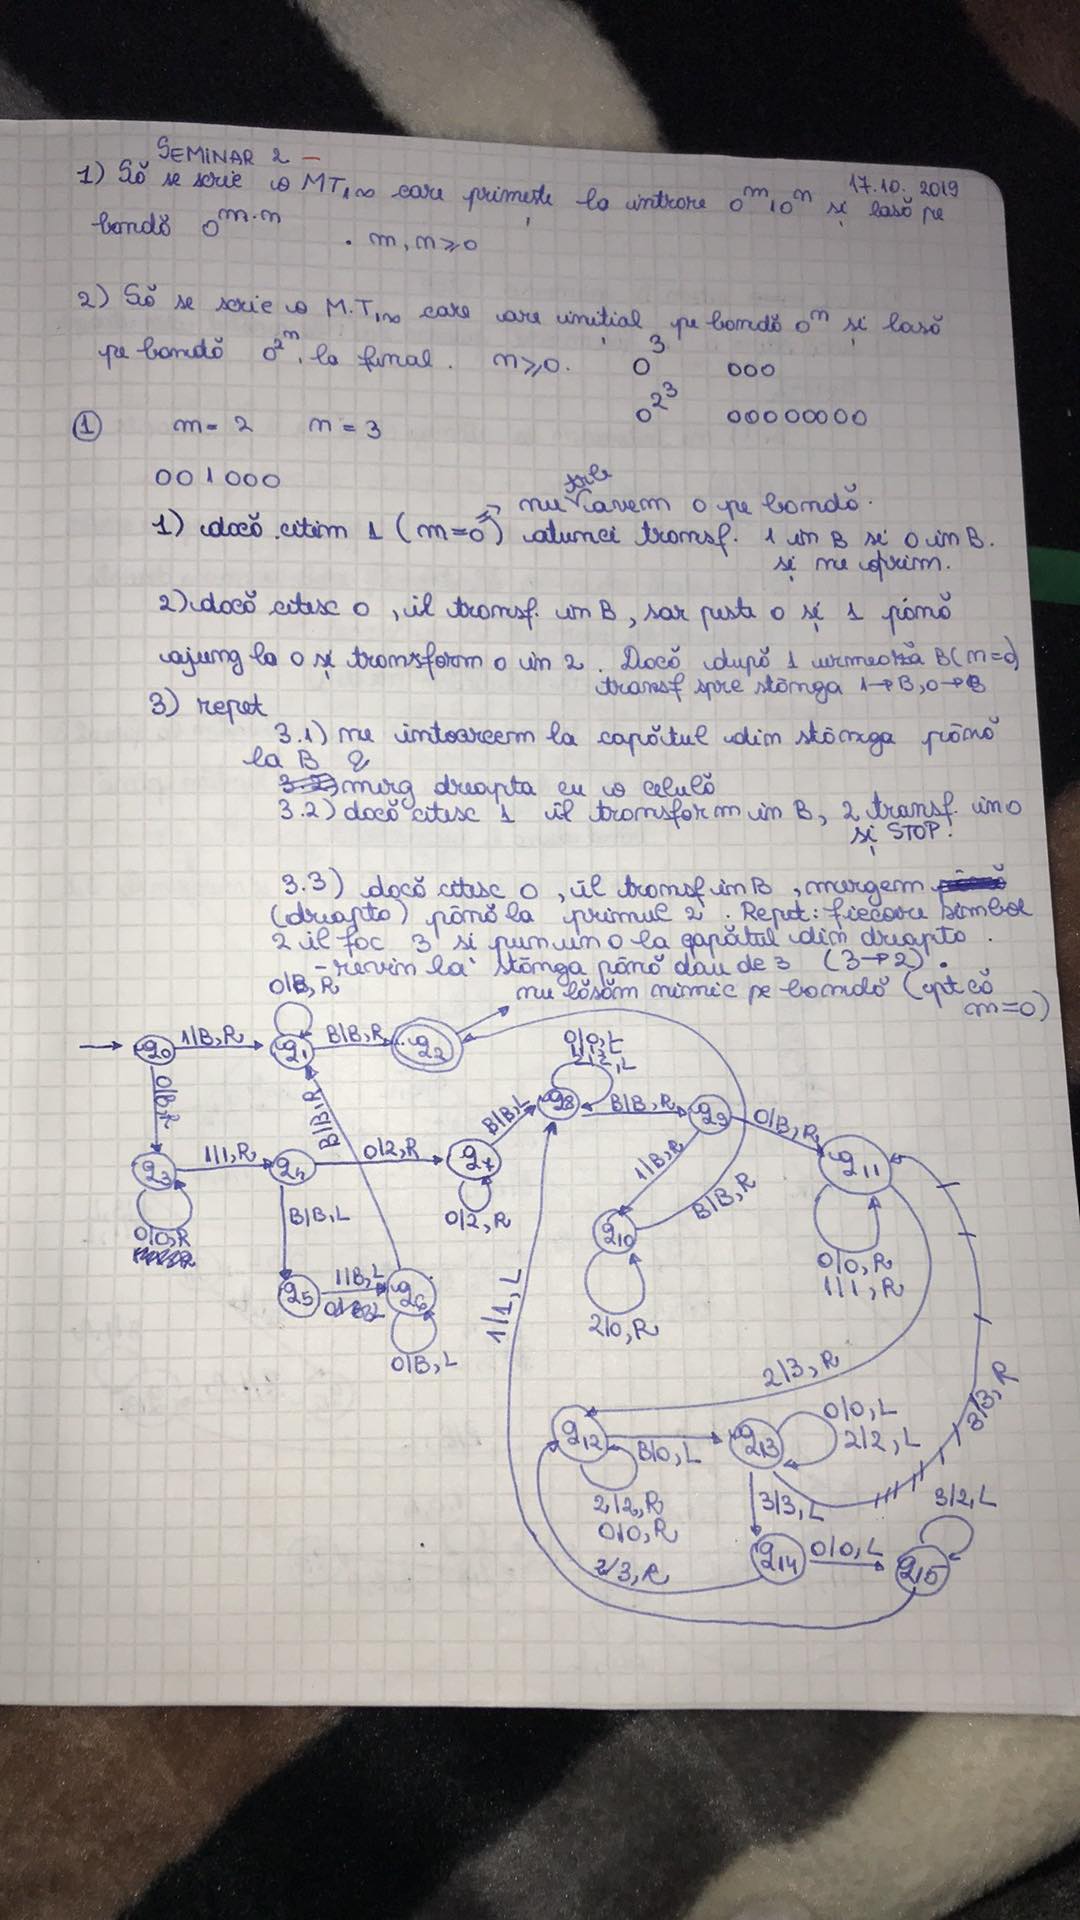 SEMINAR 2 -
17.10. 2019
1) Să se scrie o MT1,∞ care primește la intrare 0^m10^n și lasă pe
bandă 0^m·n . m, n ≥ 0
2) Să se scrie o M.T1,∞ care are inițial pe bandă 0^n și lasă
pe bandă 0^2^n la final. n ≥ 0. 0^3 000
0^2^3 00000000
① m = 2 n = 3
001000
nu avem 0 pe bandă.
1) dacă citim 1 (m=0) atunci transf. 1 în B si 0 în B.
și ne oprim.
2) dacă citesc 0, îl transf. în B, sar peste 0 și 1 până
ajung la 0 și transform 0 în 2. Dacă după 1 urmează B (n=0)
transf spre stânga 1→B, 0→B
3) repet
3.1) ne întoarcem la capătul din stânga până
la B &
merg dreapta cu o celulă
3.2) dacă citesc 1 îl transform în B, 2 transf. în 0
și STOP!
3.3) dacă citesc 0, îl transf în B, mergem
(dreapta) până la primul 2. Repet: fiecare simbol
2 îl fac 3 si pun un 0 la capătul din dreapta.
- revin la stânga până dau de 3 (3→2).
nu lăsăm nimic pe bandă (pt că
m=0)
0/B, R
q0 1/B, R q1 B/B, R q2
0/0, L
2/2, L
0/B, R
B/B, R
B/B, L q8 B/B, R q9 0/B, R
q3 1/1, R q4 0/2, R q7 1/B, R q11
0/0, R B/B, L 0/2, R q10 B/B, R
0/0, R
1/1, R
q5 1/B, L q6
0/B, L
1/1, L
2/0, R
2/3, R
3/3, R
q12 B/0, L q13 0/0, L
2/2, L
2/2, R
0/0, R
3/3, L
3/2, L
2/3, R q14 0/0, L q15